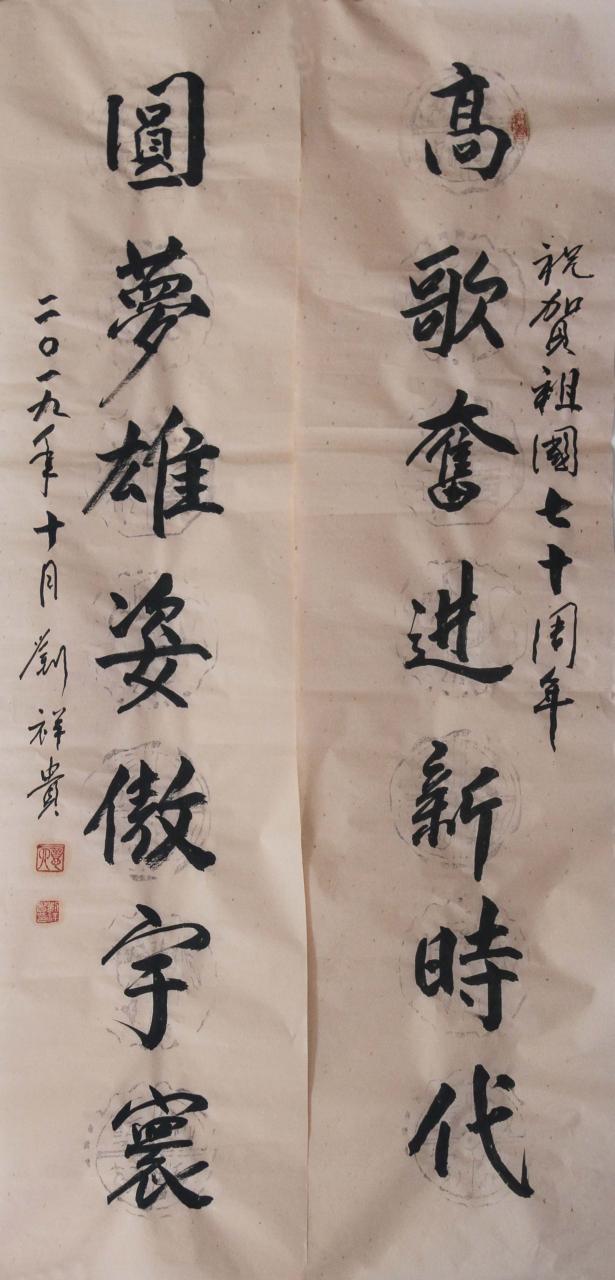 祝賀祖國七十周年
高歌奮進新時代
圓夢雄姿傲宇寰
二〇一九年十月 劉祥貴